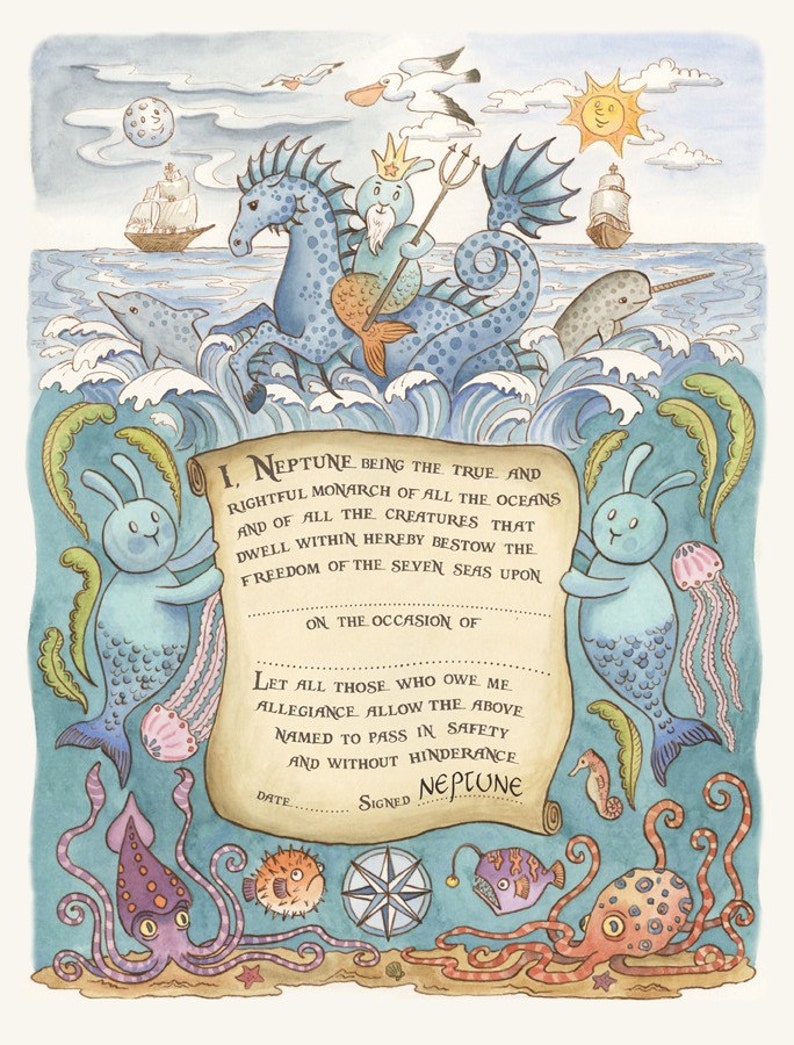 I, Neptune being the true and
rightful monarch of all the oceans
and of all the creatures that
dwell within hereby bestow the
freedom of the seven seas upon
on the occasion of
Let all those who owe me
allegiance allow the above
named to pass in safety
and without hinderance
date......... Signed NEPTUNE